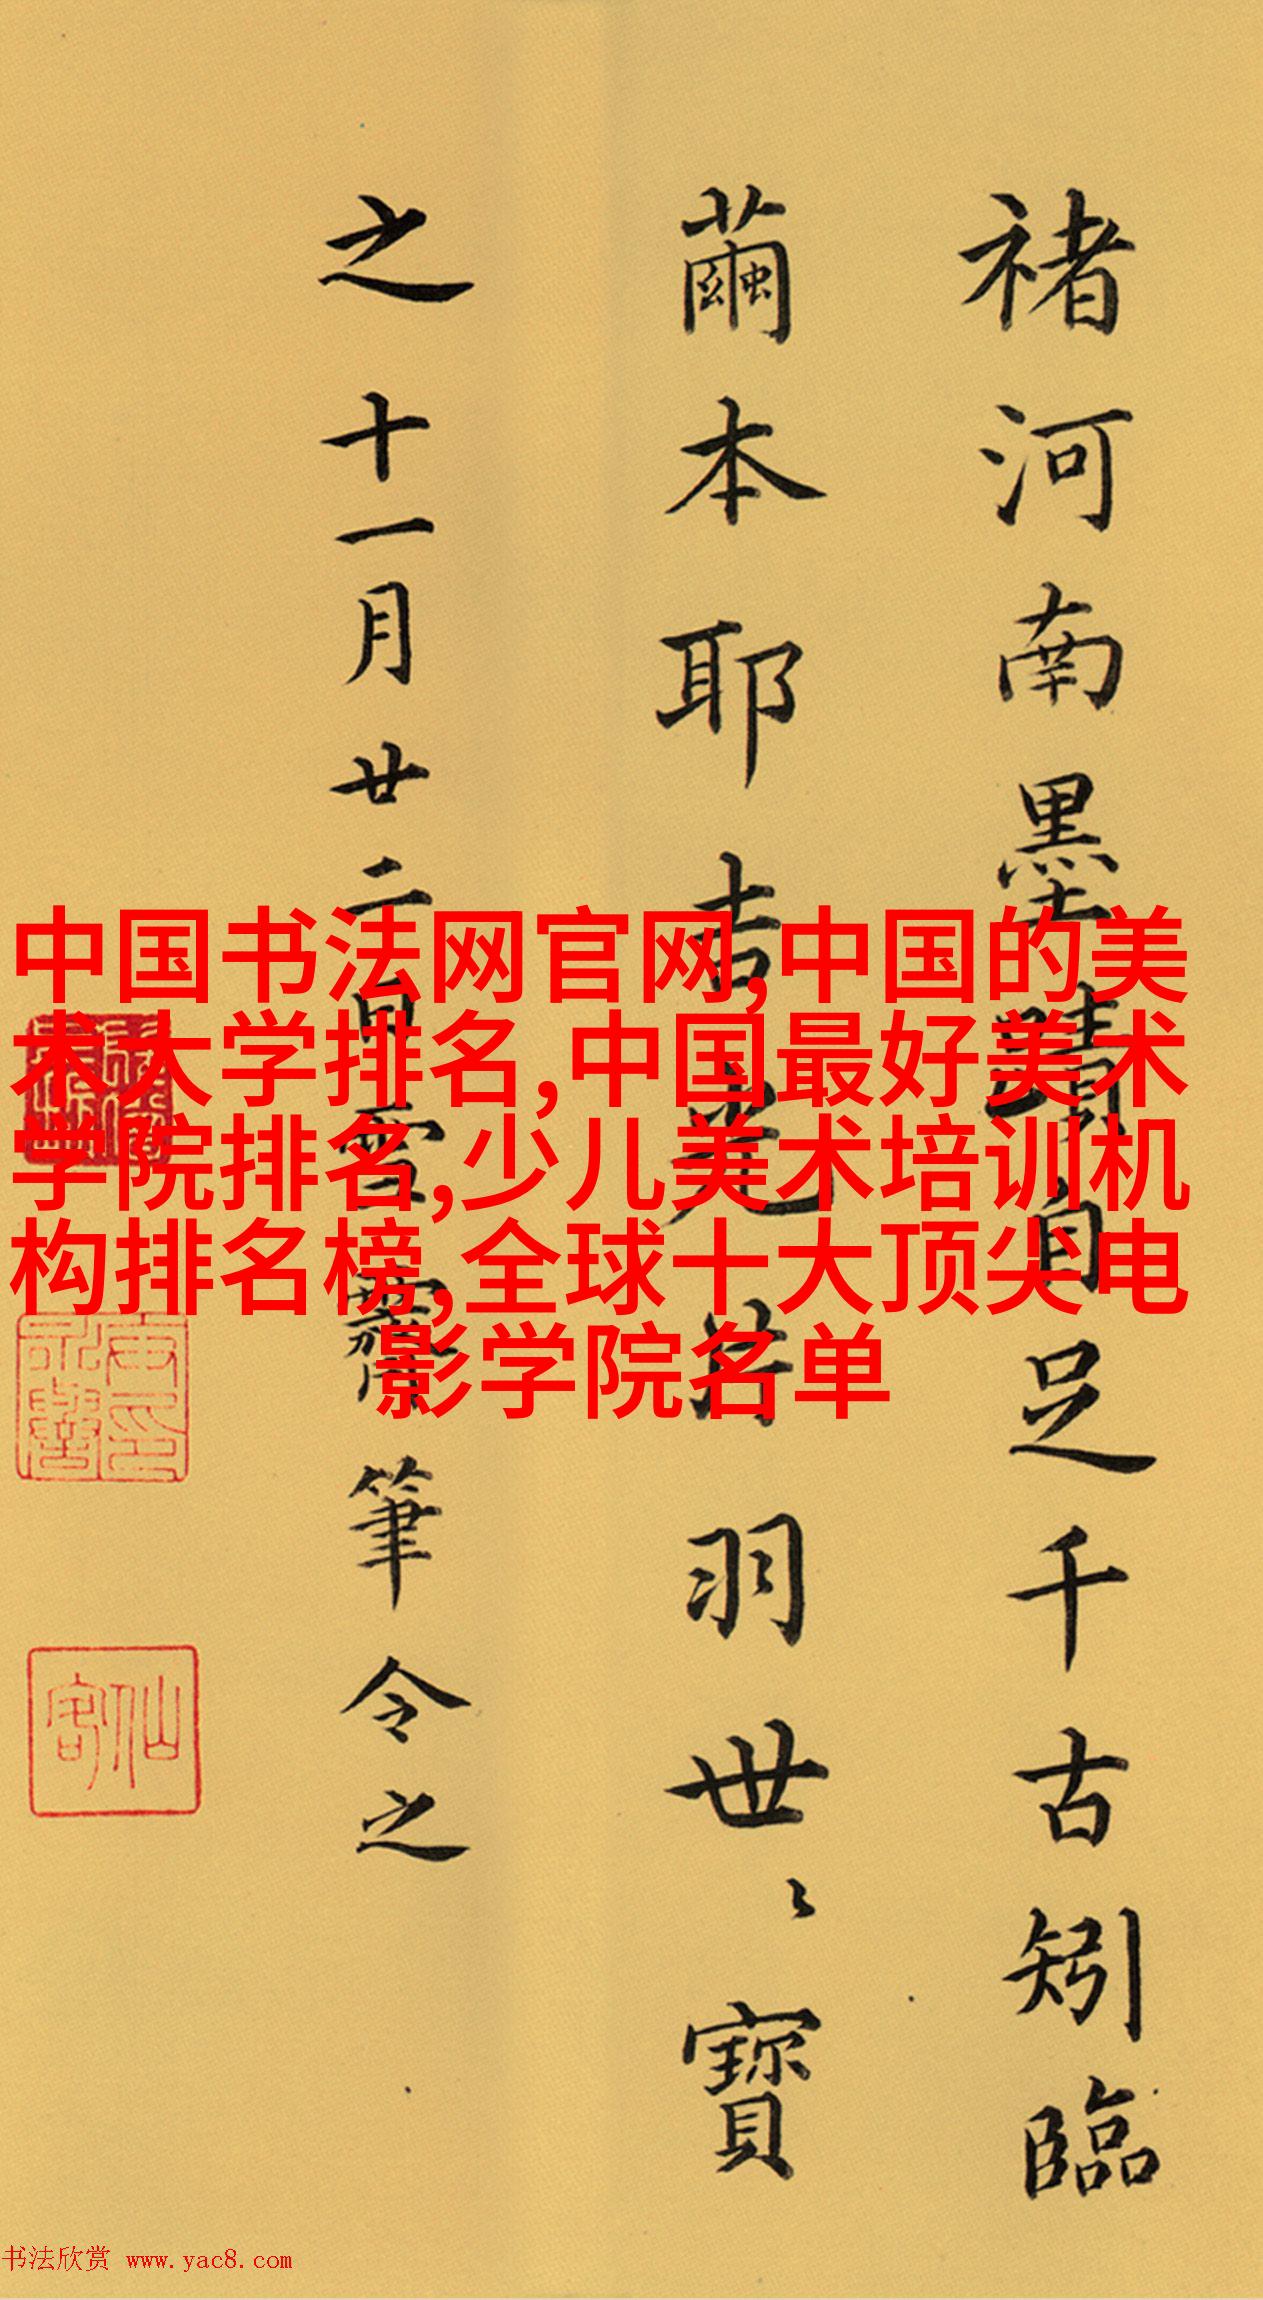 褚河南墨蹟自足千古矧臨
繭本耶吉光片羽世〻寶
之十一月廿二日雪霽筆令之
中国书法网官网,中国的美
术大学排名,中国最好美术
学院排名,少儿美术培训机
构排名榜,全球十大顶尖电
影学院名单
仙客
书法欣赏 www.yac8.com